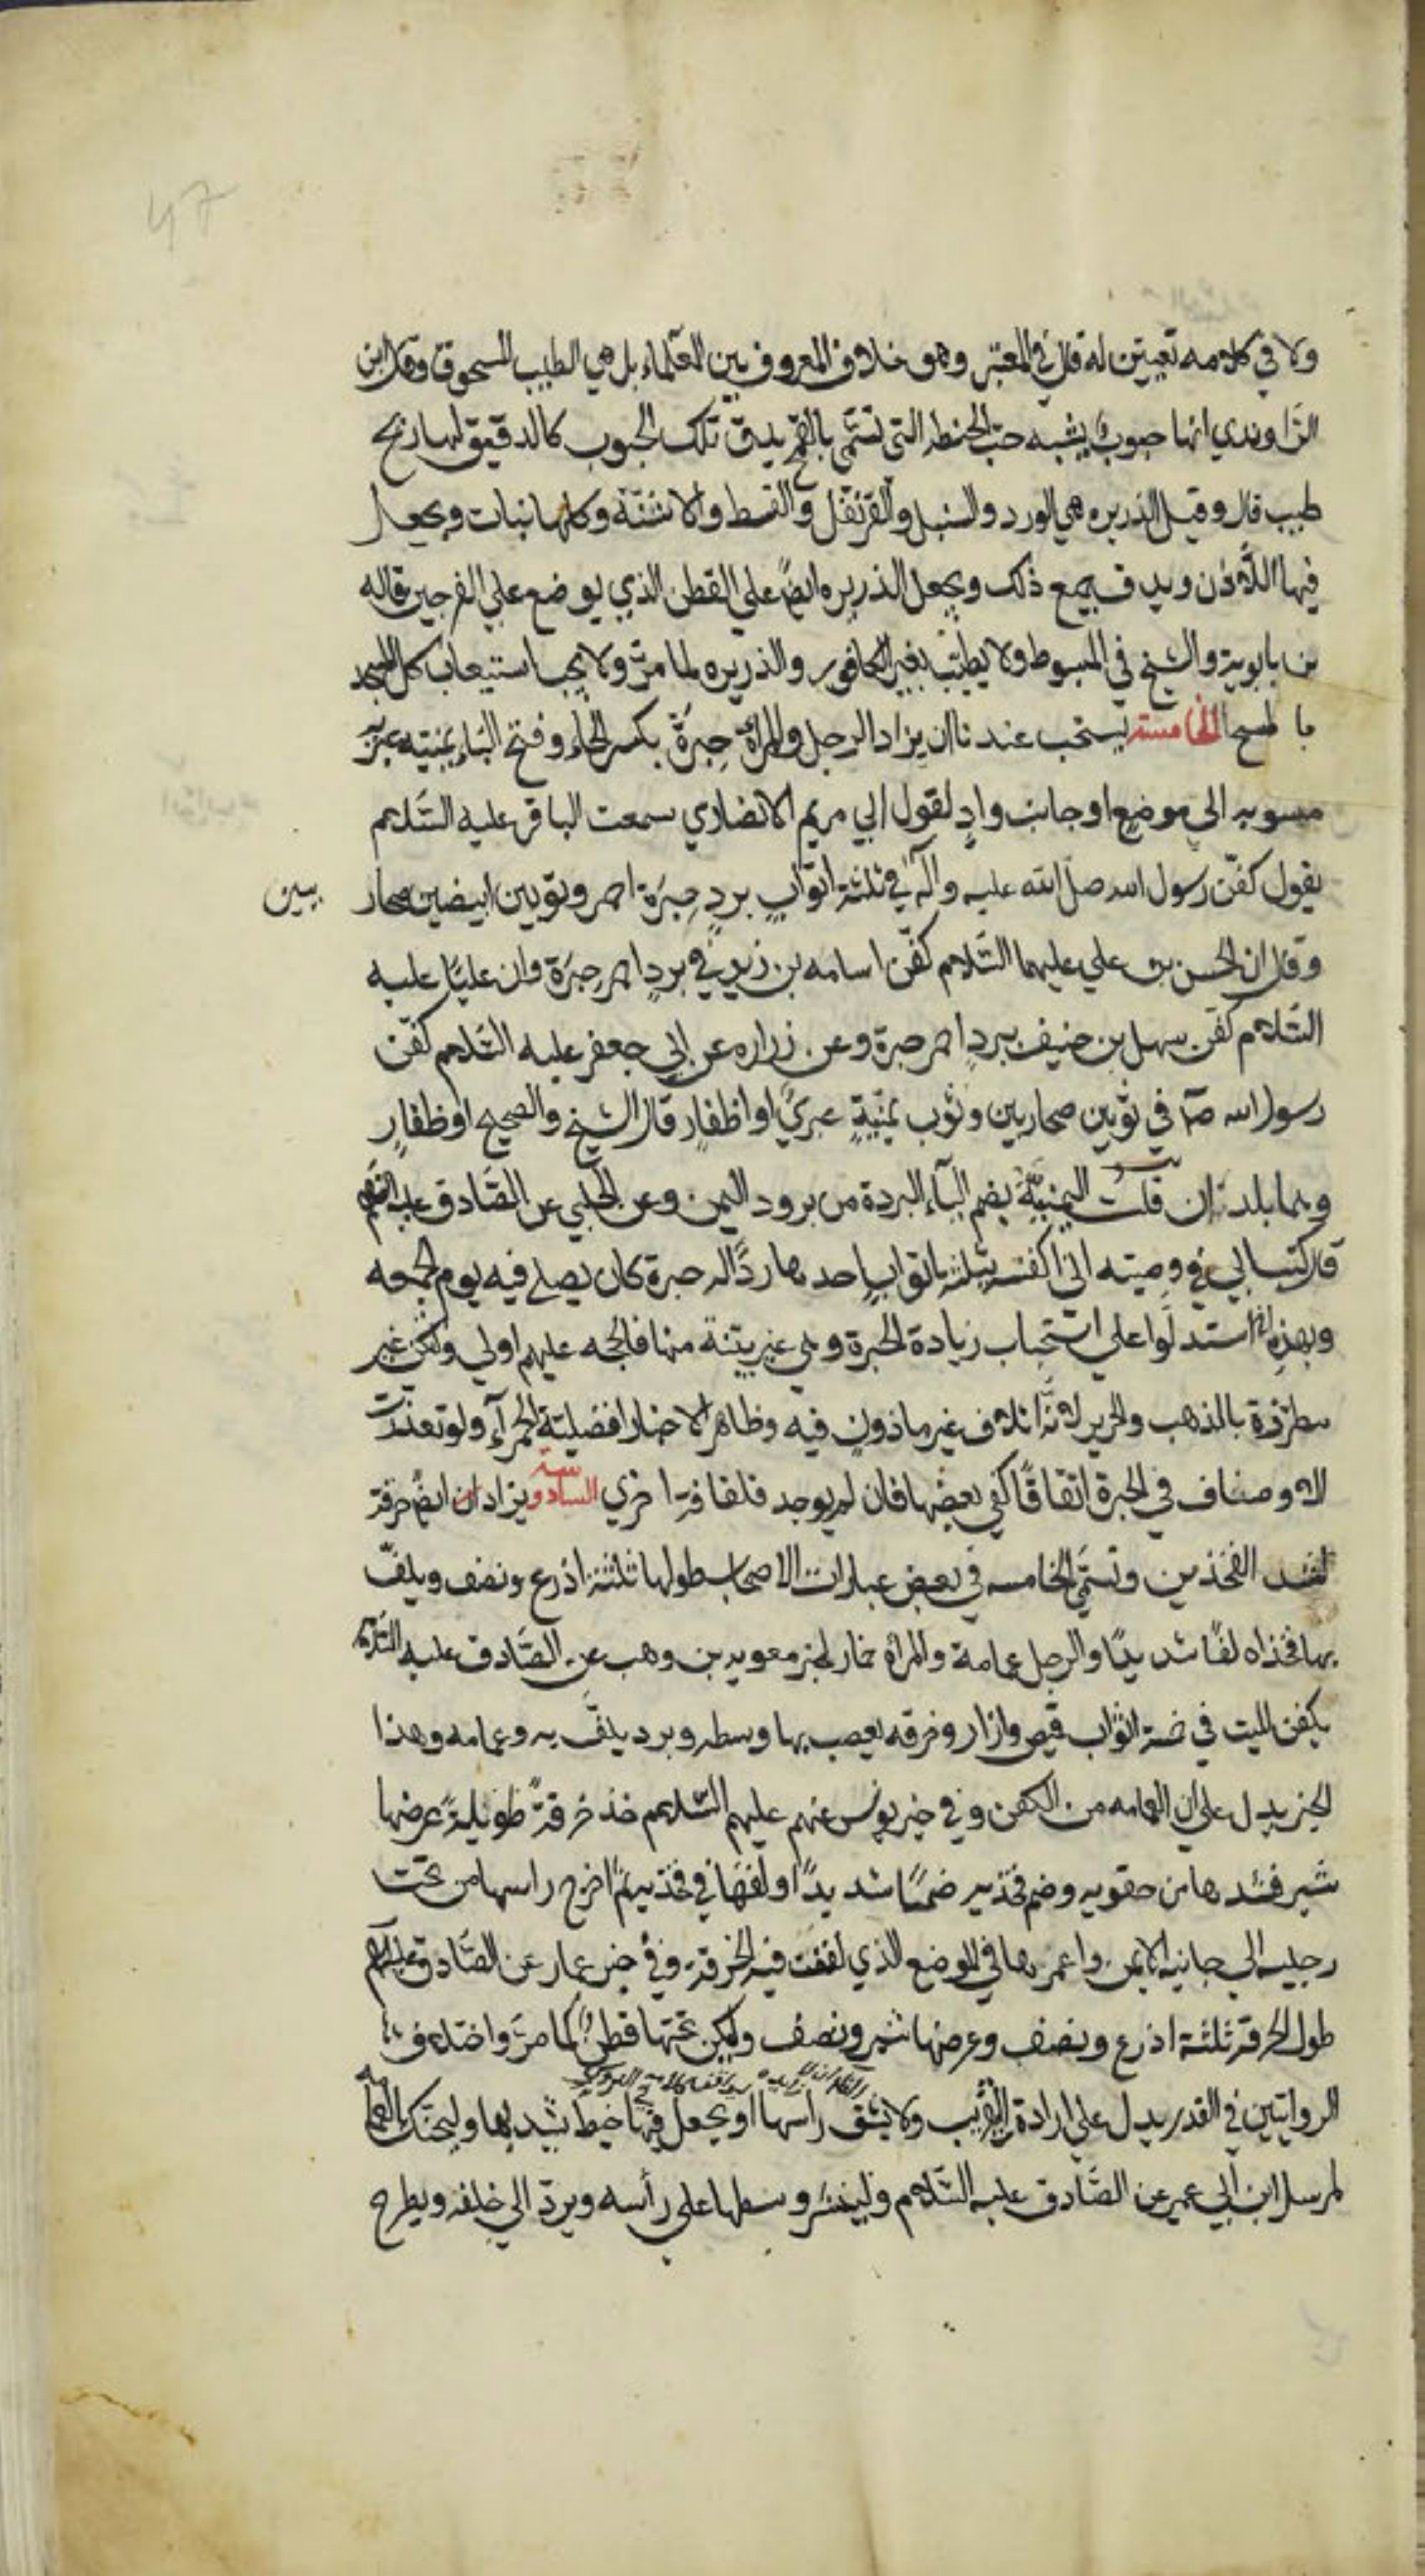 ولا في كلامه تعيين له قال في المعتبر وهو خلاف المعروف بين العلماء بل هي الطيب المسحوق وقال ابن
الراوندي انها حبوب يشبه حبّ الحنطه التي تسمّى بالقمح يدق تلك الحبوب كالدقيق لها ريح
طيب قال وقيل الذريره هي الورد والسنبل والقرنفل والقسط والاشنة وكلها نبات ويجعل
فيها اللاذن ويدق جميع ذلك ويجعل الذريره ايضً على القطن الذي يوضع علي الفرجين قاله
بن بابويه والشيخ في المبسوط ولا يطيّب بغير الكافور والذريره لما مرّ ولا يجب استيعاب كل المسجد
بالمسح الخامسة يستحب عندنا ان يزاد الرجل والمراة حِبرَة بكسر الحاء وفتح الباء يمنيته عبريه
منسوبه الى موضع او جانب وادٍ لقول ابي مريم الانصاري سمعت الباقر عليه السّلام
يقول كفّن رسول الله صلّ الله عليه وآله في ثلثة اثوابٍ بردٍ حِبَرَة احمر وثوبين ابيضين صحار
يين
وقال ان الحسن بن علي عليهما السّلام كفّن اسامه بن زيد في بردٍ احمر حِبَرَة وان عليّا عليه
السّلام كفّن سهل بن حنيف ببردٍ احمر حبرة وعن زراره عن ابي جعفر عليه السّلام كفّن
رسول الله صآ في ثوبين صحاريين وثوب يمنيّةٍ عبريٍّ او اظفار قال الشيخ والصحيح او ظفارٍ
وهما بلدتان قلت اليمنيّة بضم اليآء البردة من برود اليمن وعن الحلبي عن الصّادق عليه السّلم
قال كتب ابي في وصيته اني اكفنه بثلثة اثوابٍ احدها رداًله حبرة كان يصلي فيه يوم الجمعه
وبهذه استدلّوا على استحباب زيادة الحبرة وهي غير بيّنة منها فالحجه عليهم اولى ولتكن غير
مطرّزة بالذهب والحرير لانّه اتلاف غير ماذونٍ فيه وظاهر الاخبار افضليّة الحمرآء ولو تعذرت
الاوصاف في الحبرة اتفاقًا كفى بعضها فان لم يوجد فلفافة اخري السادسة يزادان ايضً خرقة
لشد الفخذين وتسمّى الخامسه في بعض عبارات الاصحاب طولها ثلثة اذرع ونصف ويلفّ
بها فخذاه لفًا شديدًا والرجل عمامة والمراة خمار لخبر معويه بن وهب عن الصّادق عليه السّلام
يكفن الميت في خمسة اثواب قميص وازار وخرقه يعصب بها وسطه وبرد يلفّ به وعمامه وهذا
الخبر يدل علي ان العمامه من الكفن وفي خبر يونس عنهم عليهم السّلام خذ خرقةً طويلةً عرضها
شبر فشدها من حقويه وضم فخذيه ضمًا شديدًا ولفّها في فخذيه ثم اخرج راسها من تحت
رجليه الي جانبه الايمن واغمزها في الموضع الذي لففت فيه الخرقة وفي خبر عمار عن الصّادق عليه السّلم
طول الخرقة ثلثة اذرع ونصف وعرضها شبر ونصف وليكن تحتها قطنٌ كما مرّ واختلاف
الروايتين في القدر يدل علي ارادة التقريب ولا يشق راسها او يجعل فيها خيط يشد بها وليحنّك بالعمامه
لمرسل ابن ابي عمير عن الصّادق عليه السّلام ولينشر وسطها على رأسه ويردّ الي خلفه ويطرح